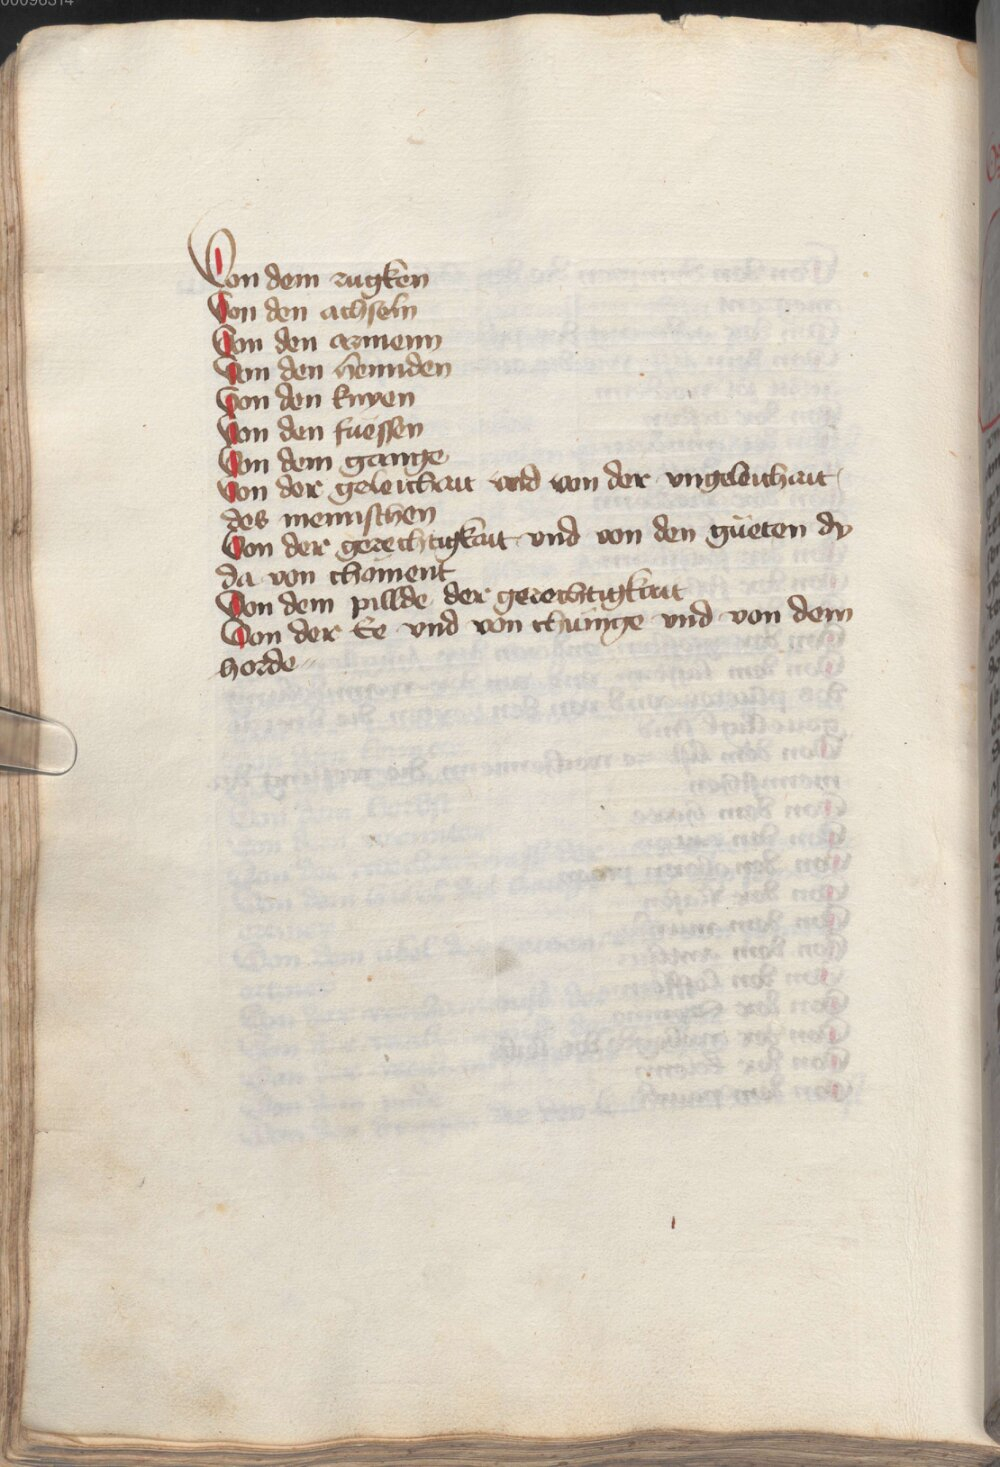 Von dem rugken
Von den achseln
Von den armenn
Von den hennden
Von den knyen
Von den füessen
Von dem gannge
Von der geleichait vnd von der vngeleichait
des mennschen
Von der gerechtigkait vnd von den güeten dy
da von chöment
Von dem pillde der gerechtigkait
Von der Ee vnd von chünige vnd von dem
horde